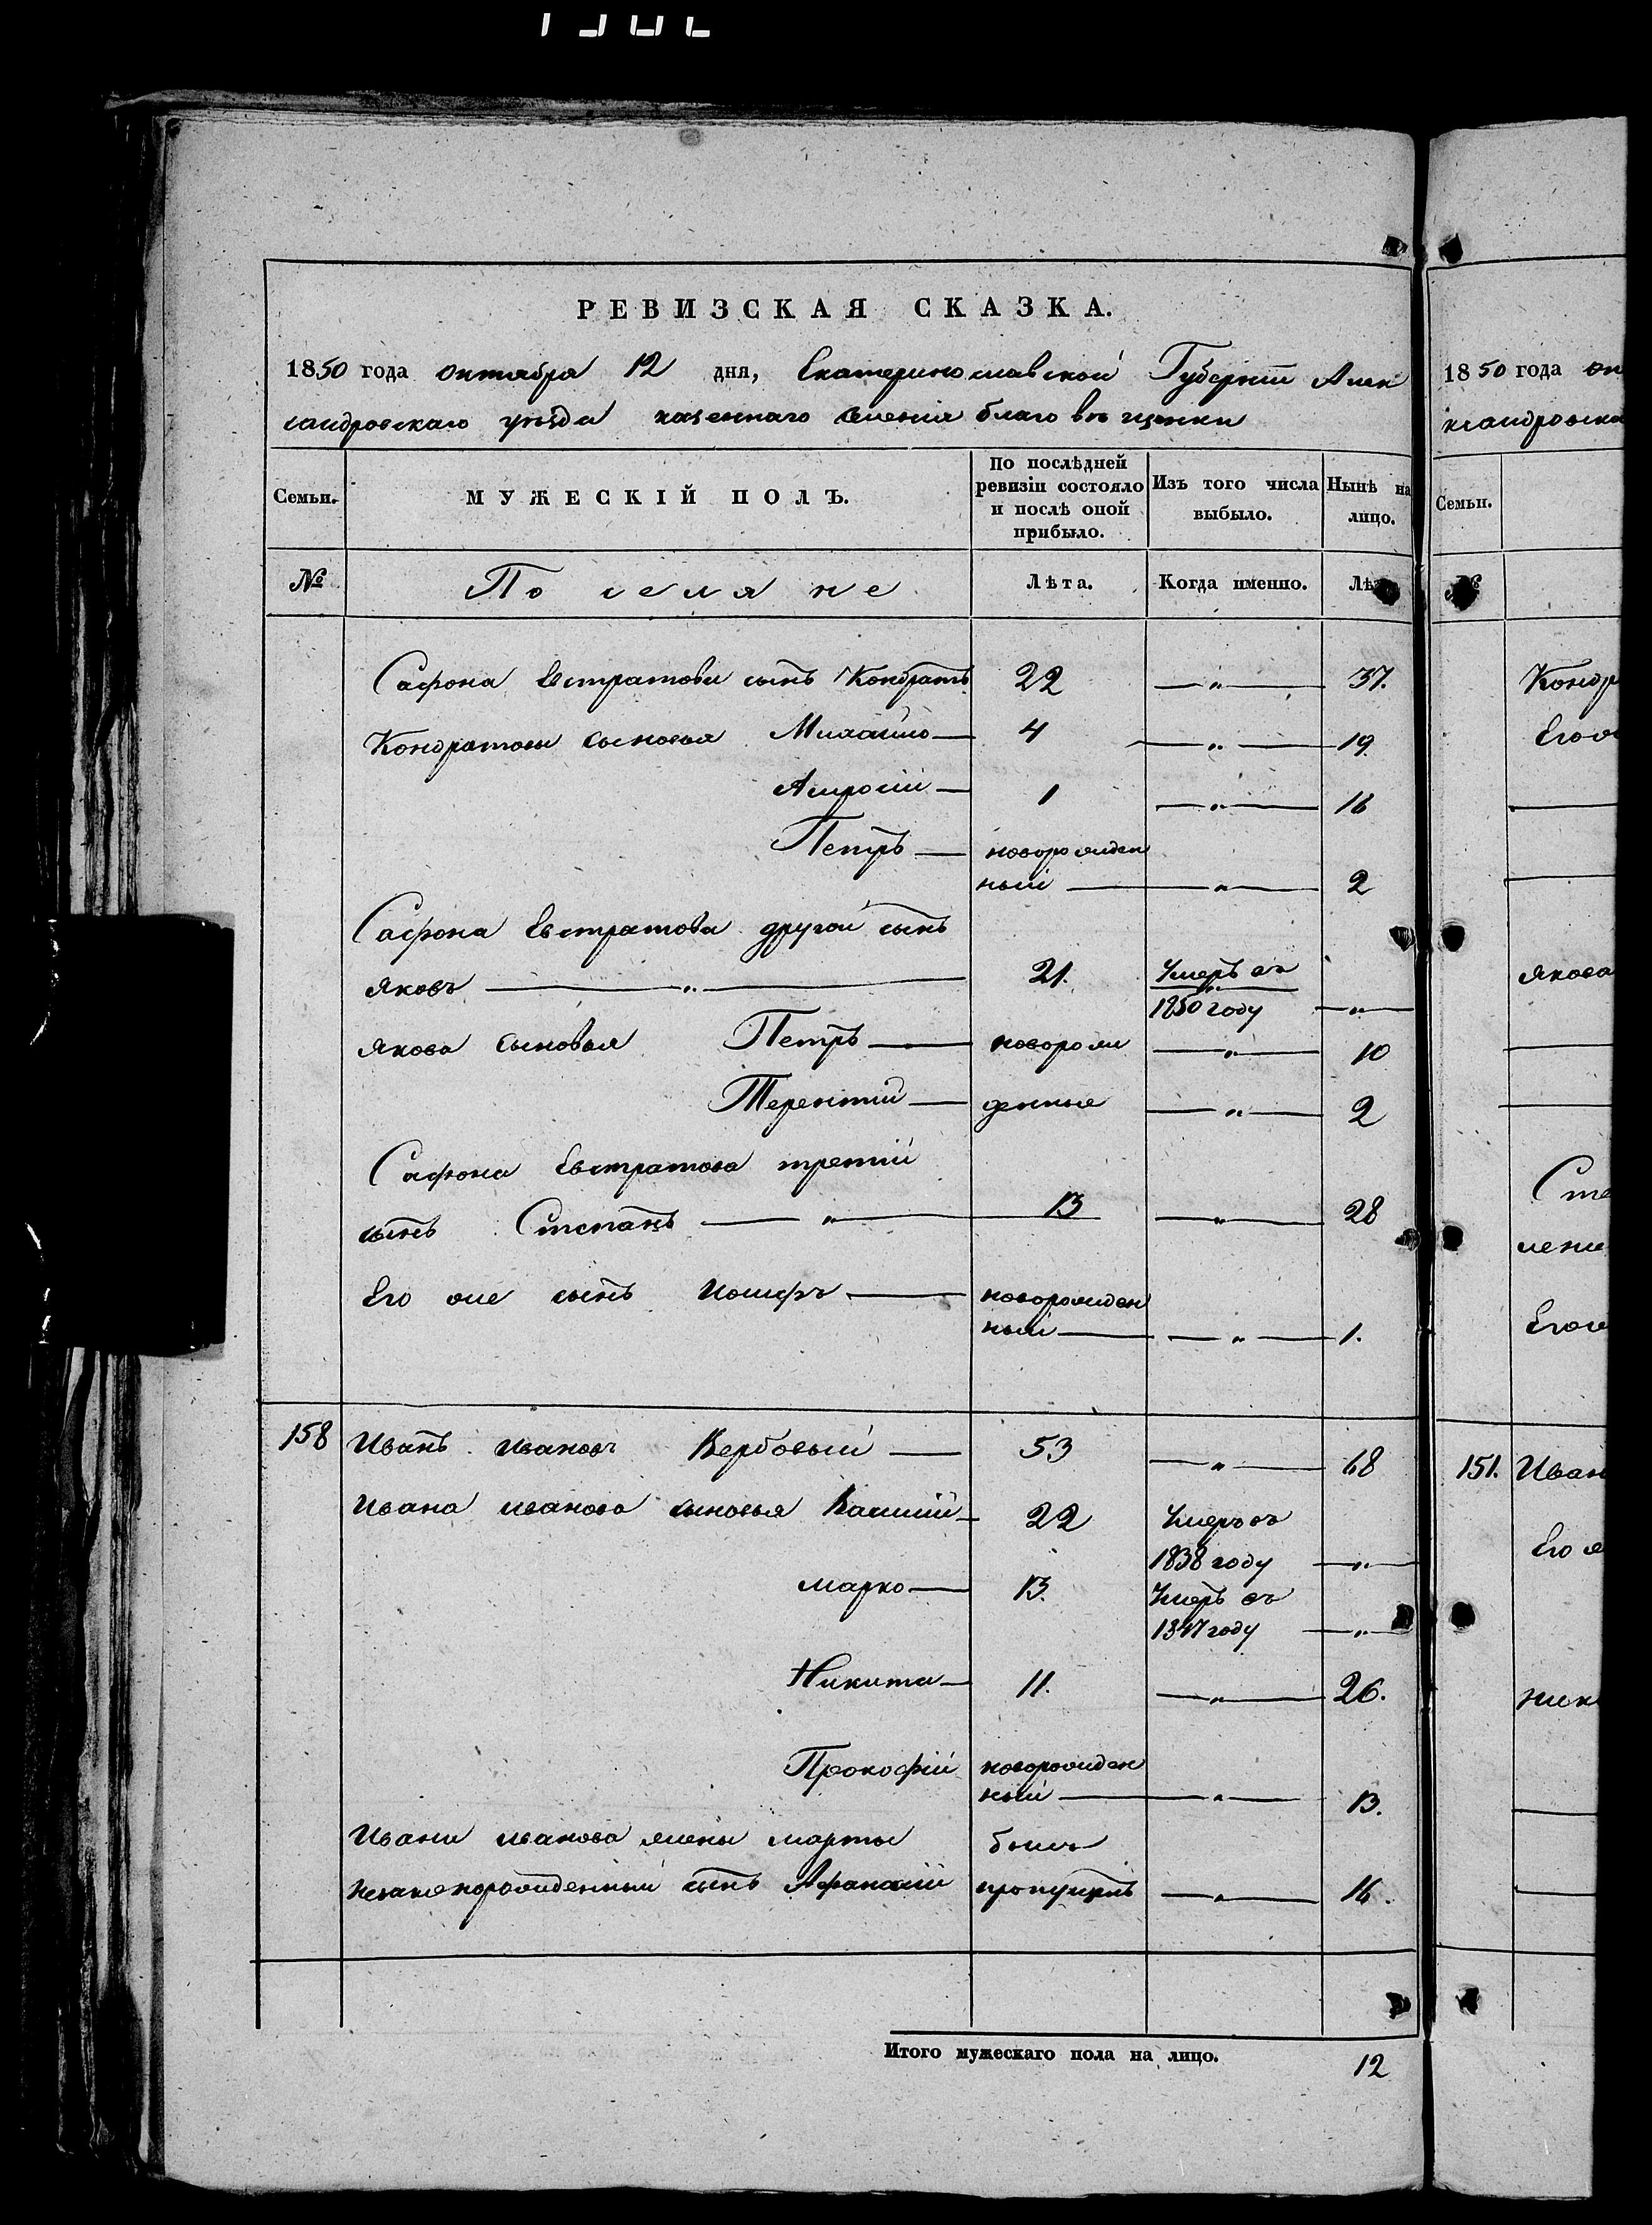 РЕВИЗСКАЯ СКАЗКА.
1850 года октября 12 дня, Екатеринославской Губернiи Алек
сандровскаго уѣзда казеннаго селенiя благовѣщенки
Семьи. МУЖЕСКІЙ ПОЛЪ. По послѣдней ревизіи состояло и послѣ оной прибыло. Изъ того числа выбыло. Нынѣ на лицо.
№ Поселяне Лѣта. Когда именно. Лѣ
Сафона Евстратова сынъ Кондратъ 22 — " — 37.
Кондратовы сыновья Михайло — 4 — " — 19.
Амросiй — 1 — " — 16
Петръ — новорожден
ный — " — 2
Сафона Евстратова другой сынъ
Яковъ — " — 21. Умеръ въ
1850 году — " —
Якова сыновья Петръ — новорож — " — 10
Терентiй — денные — " — 2
Сафона Евстратова третiй
сынъ Степанъ — " — 13 — " — 28
Его же сынъ Иосифъ — новорожден
ный — " — 1.
158 Иванъ Ивановъ Вербовый — 53 — " — 68
Ивана Иванова сыновья Василiй — 22 Умеръ въ
1838 году — " —
Марко — 13. Умеръ въ
1847 году — " —
Никита — 11. — " — 26.
Прокофiй новорожден
ный — " — 13.
Ивана Иванова жены Марты былъ
незаконорожденный сынъ Афанасiй пропущенъ — " — 16.
Итого мужескаго пола на лицо. 12
1850 года ок
ксандровска
Семьи.
Кондр
Его ж
Якова
Сте
Его ж
151. Иван
Его ж